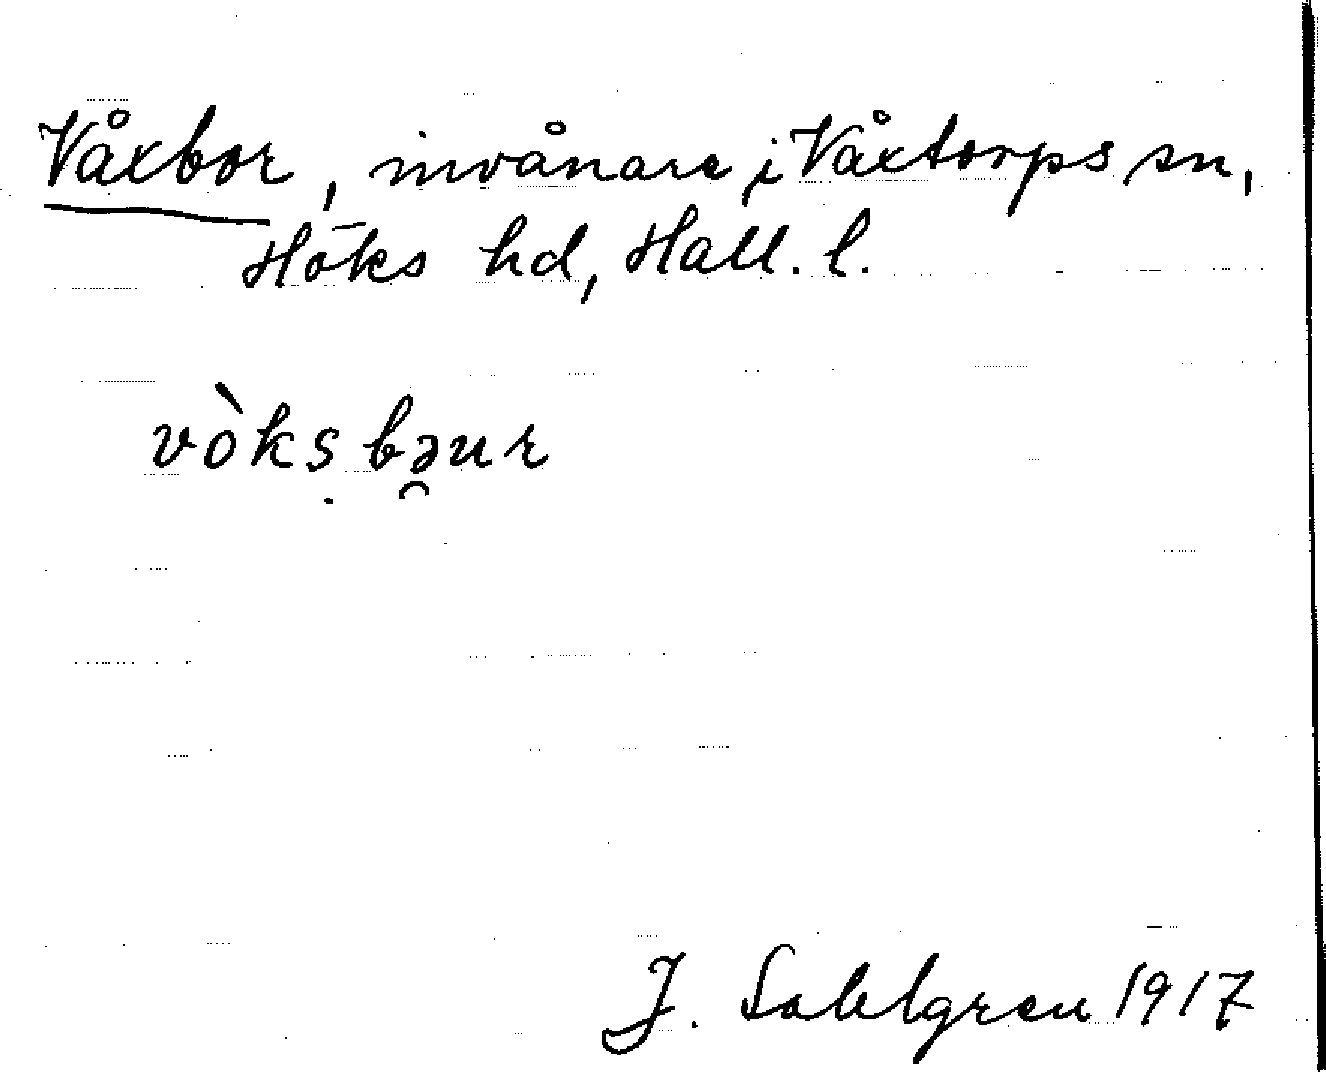 Våxbor, invånare i Våxtorps sn,
Höks hd, Hall. l.
vòksbə̯ur
J. Sahlgren 1917